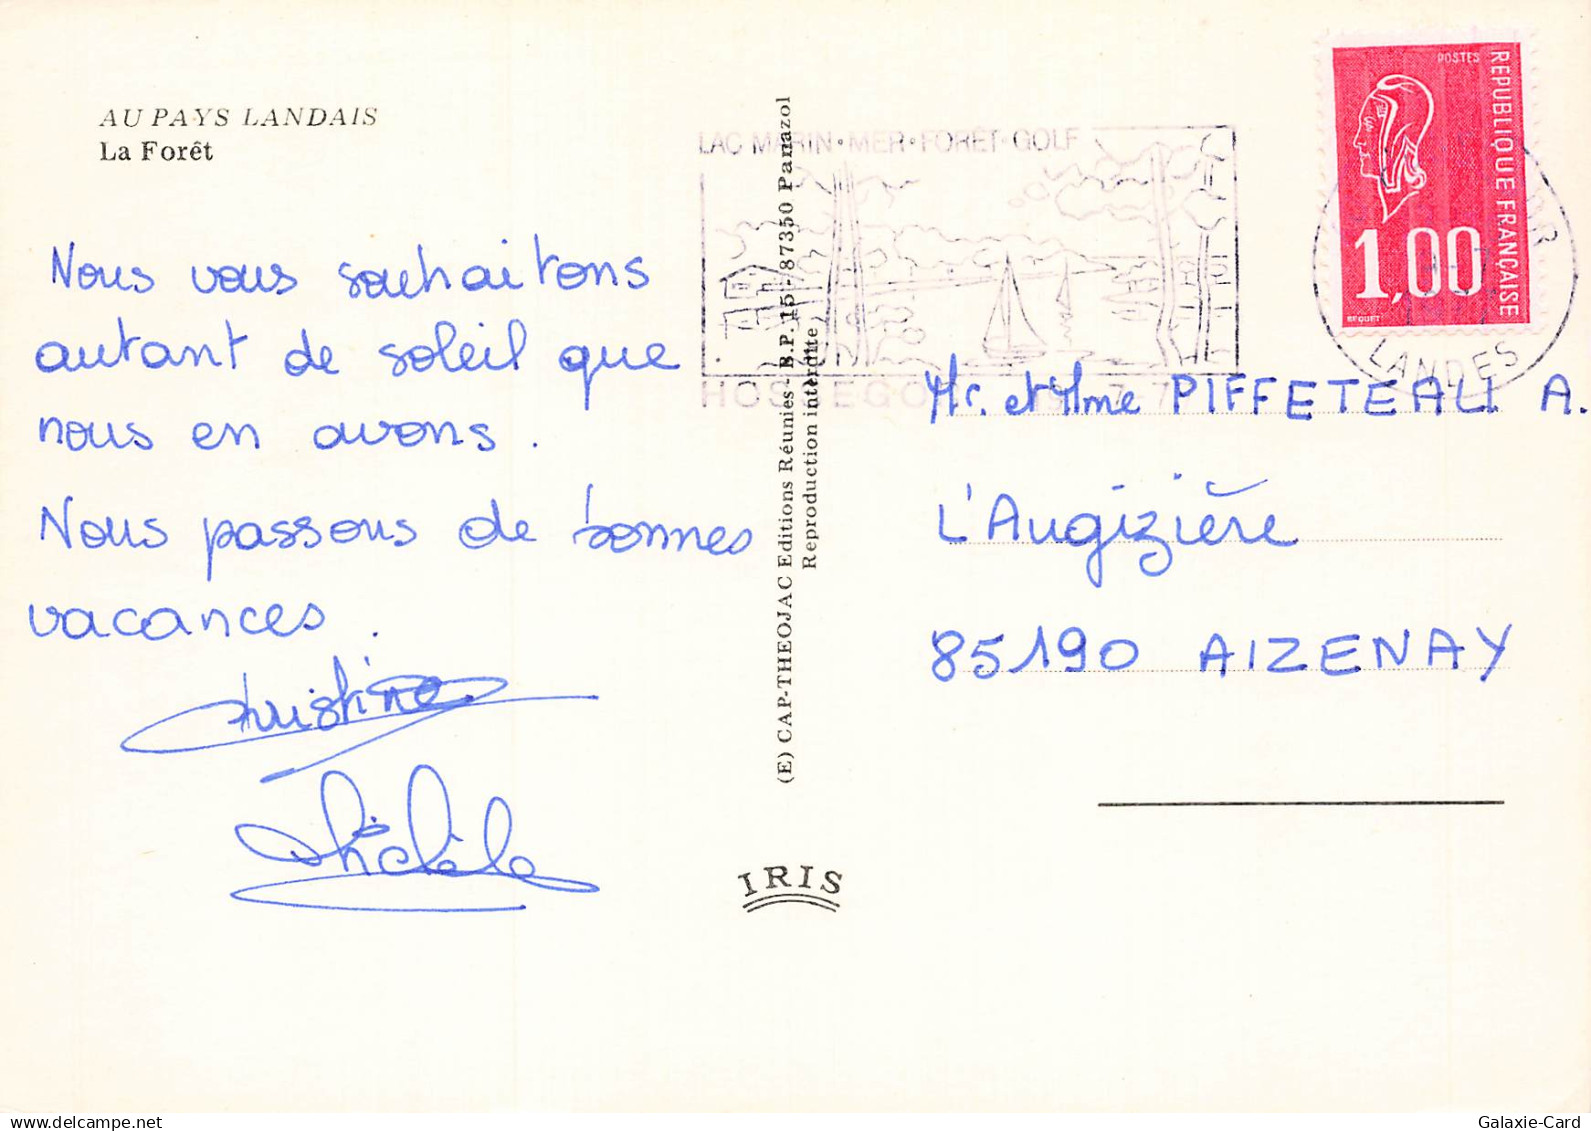 AU PAYS LANDAIS
La Forêt
Nous vous souhaitons
autant de soleil que
nous en avons.
Nous passons de bonnes
vacances.
Christine
Michèle
(E) CAP-THEOJAC Editions Réunies - B.P. 15 - 87350 Panazol
Reproduction interdite
IRIS
LAC MARIN • MER • FORÊT • GOLF
HOSSEGOR
POSTES
REPUBLIQUE FRANÇAISE
1,00
BEQUET
LANDES
Mr. et Mme PIFFETEAU A.
L'Augizière
85190 AIZENAY
www.delcampe.net
Galaxie-Card